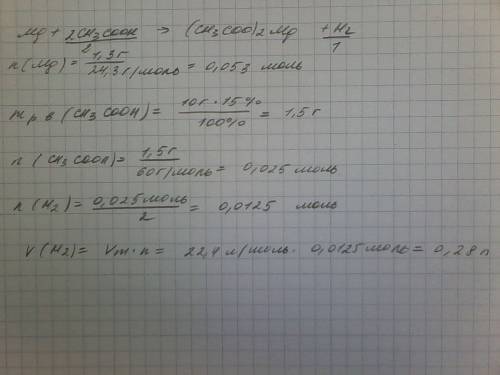 Mg + 2CH₃COOH/2 → (CH₃COO)₂Mg + H₂/1
n(Mg) = 1,3г/24,3г/моль = 0,053 моль
m р.в (CH₃COOH) = 10г · 15%/100% = 1,5г
n (CH₃COOH) = 1,5г/60г/моль = 0,025 моль
n (H₂) = 0,025 моль/2 = 0,0125 моль
V (H₂) = Vm · n = 22,4 л/моль · 0,0125 моль = 0,28 л